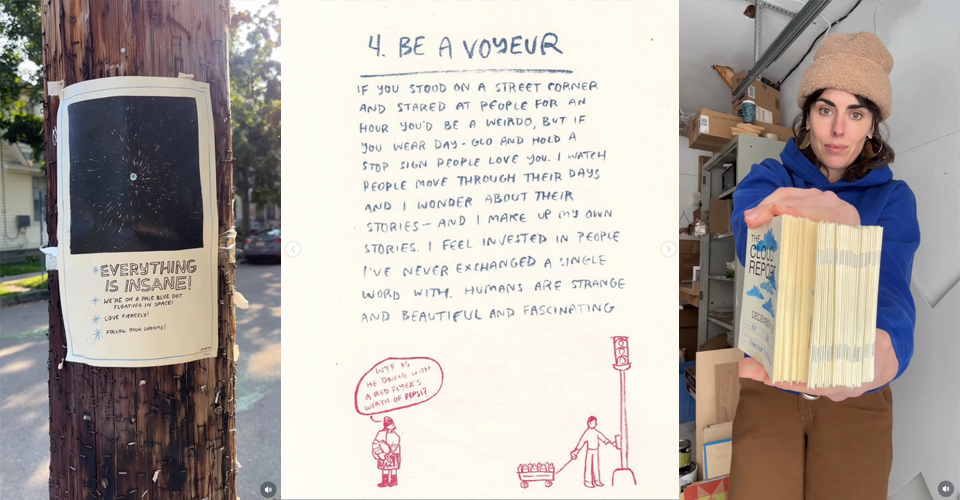 EVERYTHING
IS INSANE!
WE'RE ON A PALE BLUE DOT
FLOATING IN SPACE!
LOVE FIERCELY!
FOLLOW YOUR DREAMS!
4. BE A VOYEUR
IF YOU STOOD ON A STREET CORNER
AND STARED AT PEOPLE FOR AN
HOUR YOU'D BE A WEIRDO, BUT IF
YOU WEAR DAY-GLO AND HOLD A
STOP SIGN PEOPLE LOVE YOU. I WATCH
PEOPLE MOVE THROUGH THEIR DAYS
AND I WONDER ABOUT THEIR
STORIES— AND I MAKE UP MY OWN
STORIES. I FEEL INVESTED IN PEOPLE
I'VE NEVER EXCHANGED A SINGLE
WORD WITH. HUMANS ARE STRANGE
AND BEAUTIFUL AND FASCINATING
WTF IS
HE DOING WITH
A RED FLYER'S
WORTH OF PEPSI?
THE
CLOUD
REPORT